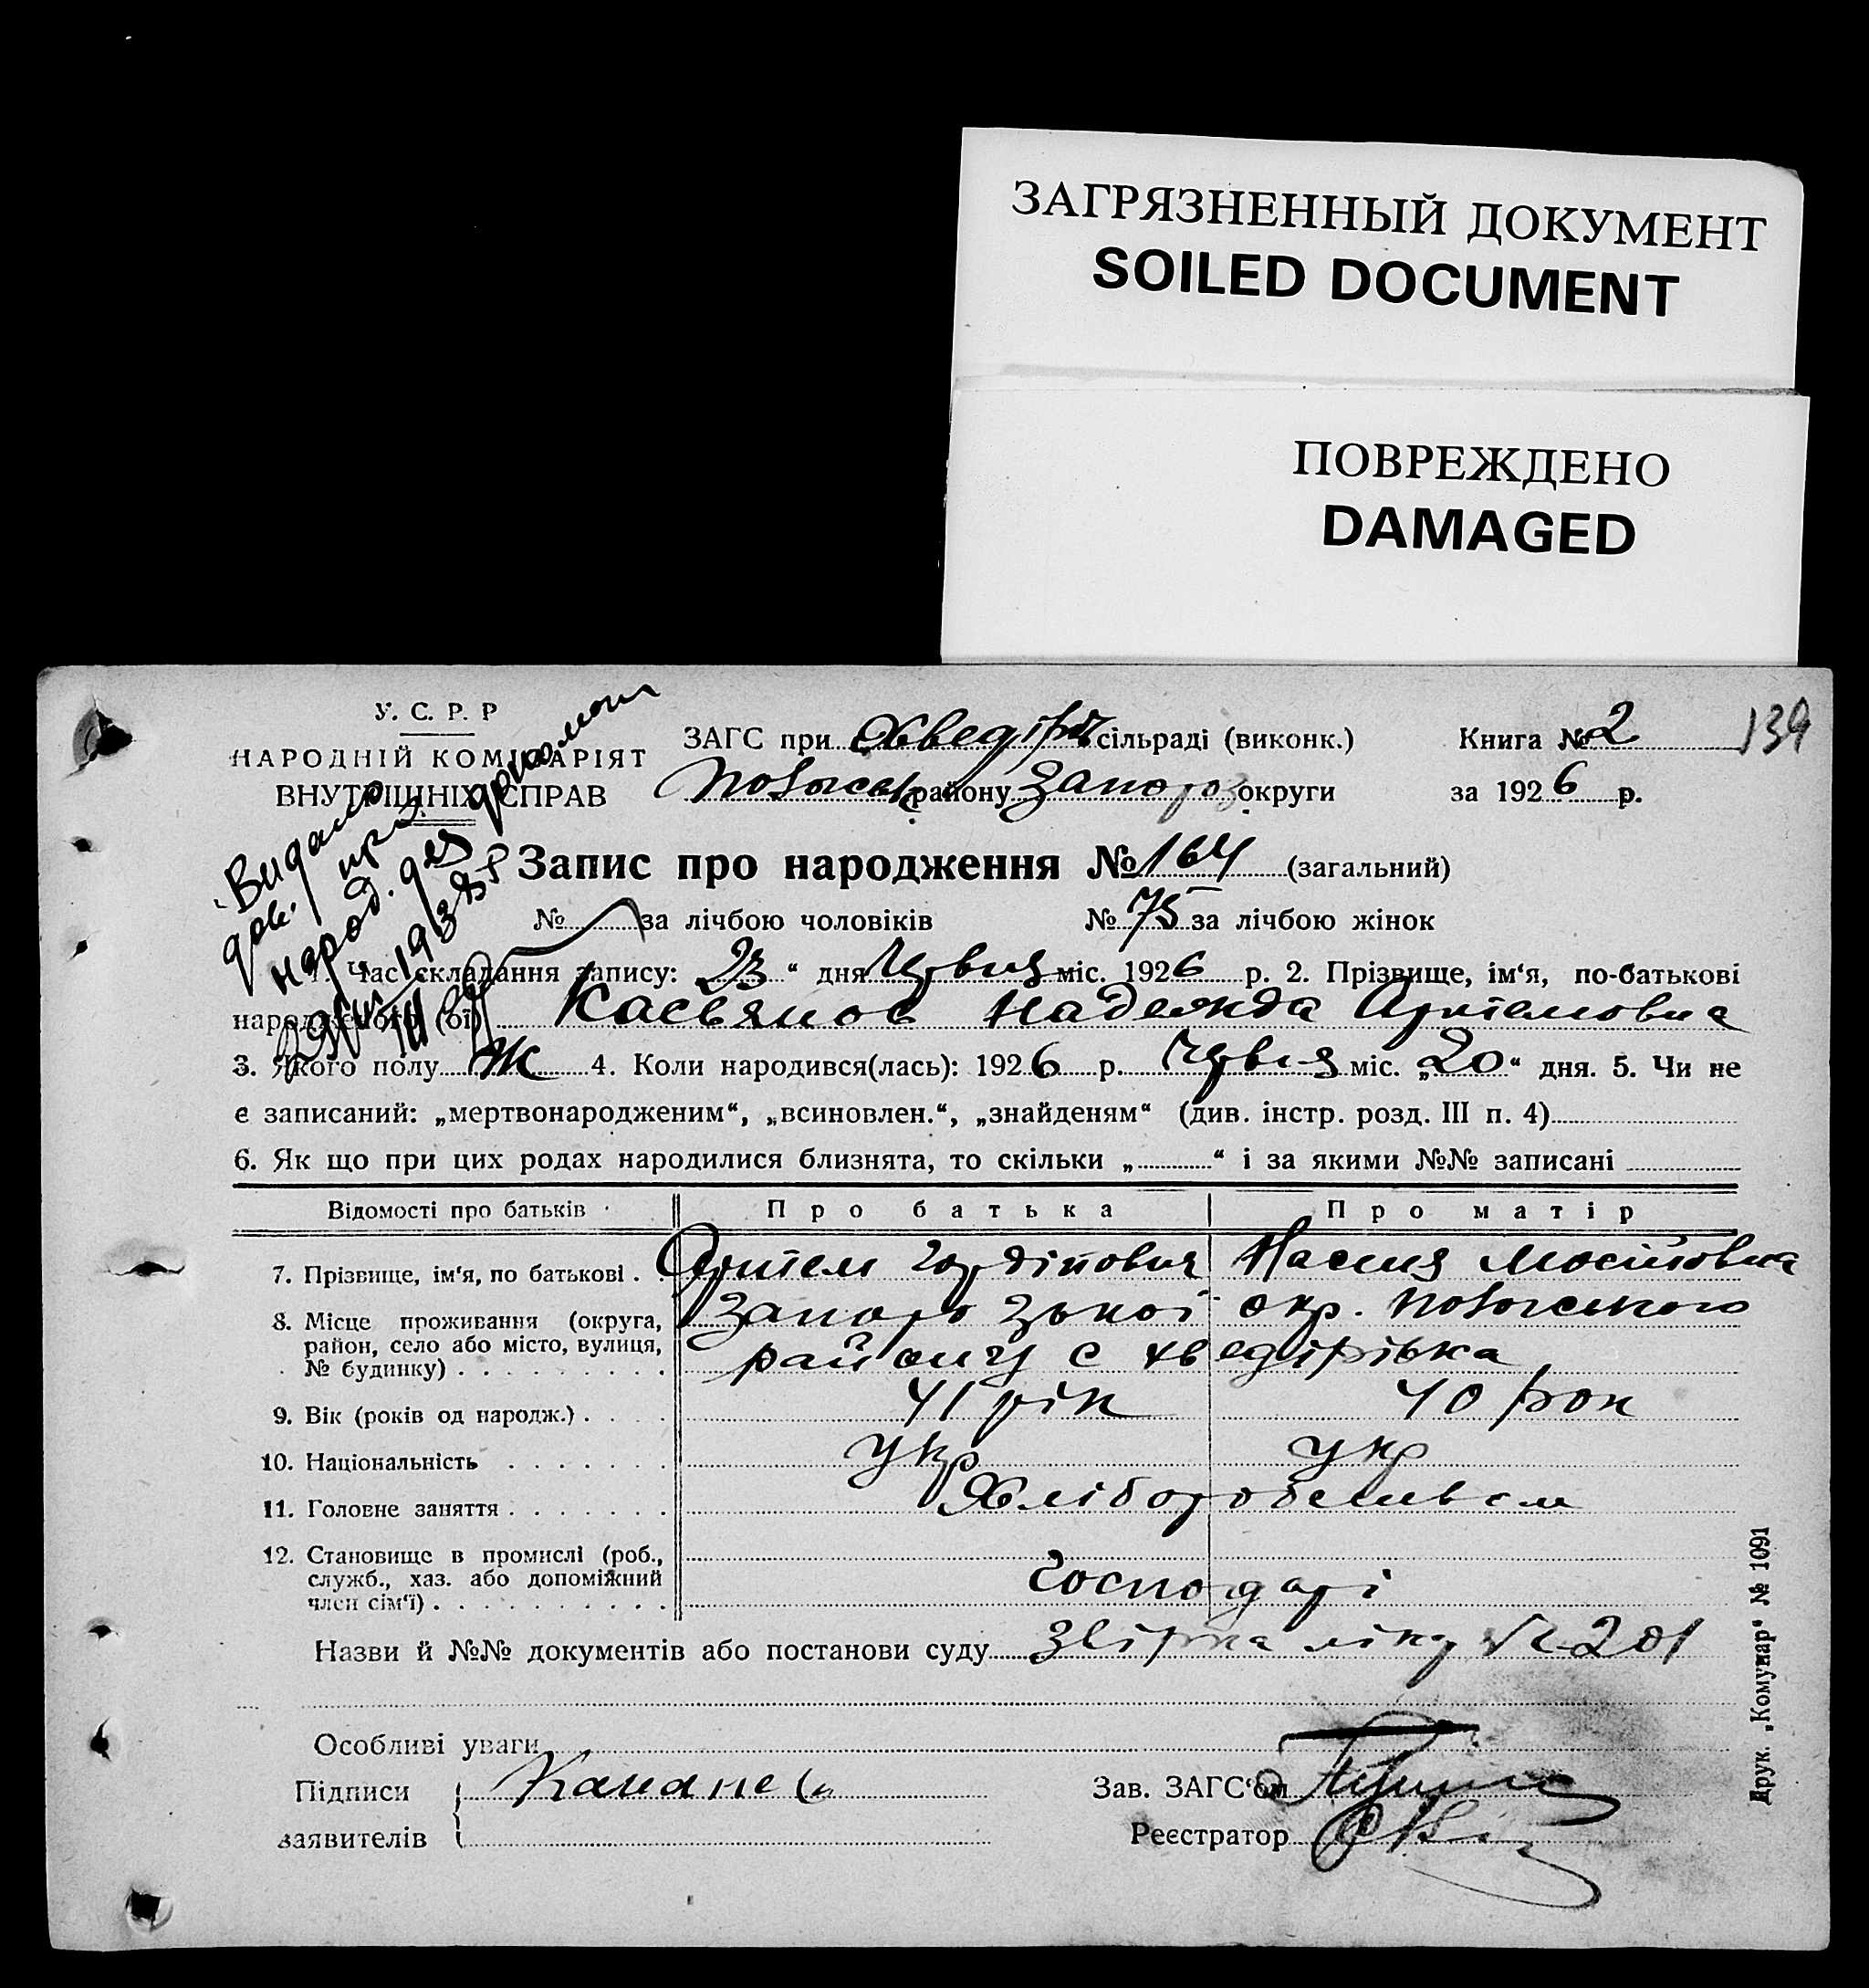 ЗАГРЯЗНЕННЫЙ ДОКУМЕНТ
SOILED DOCUMENT
ПОВРЕЖДЕНО
DAMAGED
139
У. С. Р. Р
НАРОДНІЙ КОМІСАРІЯТ
ВНУТРІШНІХ СПРАВ
ЗАГС при Хведірів сільраді (виконк.) Книга № 2
району Запороз округи за 1926 р.
Видано
дов. про
народ. для
1938 р
Запис про народження № 164 (загальний)
№ за лічбою чоловіків № 75 за лічбою жінок
1. Час складання запису: 23 “ дня Червня міс. 1926 р. 2. Прізвище, ім‘я, по-батькові
народженого (ої) Касьянов Надежда Артемовна
3. Якого полу Ж 4. Коли народився(лась): 1926 р. Червня міс. „20“ дня. 5. Чи не
є записаний: „мертвонародженим“, „всиновлен.“, „знайденям“ (див. інстр. розд. III п. 4)
6. Як що при цих родах народилися близнята, то скільки „ “ і за якими №№ записані
Відомості про батьків Про батька Про матір
7. Прізвище, ім‘я, по батькові . Артем Гордіпович Насия Мосіповна
8. Місце проживання (округа, Запорозької окр.
район, село або місто, вулиця, району с Хведірівка
№ будинку)
9. Вік (років од народж.) 41 рік 40 рок
10. Національність укр укр
11. Головне заняття Хліборобством
12. Становище в промислі (роб.,
служб., хаз. або допоміжний Господарі
член сім‘ї)
Назви й №№ документів або постанови суду Звірка лікар № 201
Особливі уваги
Підписи
заявителів
Зав. ЗАГС‘ом
Реєстратор
Друк. „Комунар“ № 1091